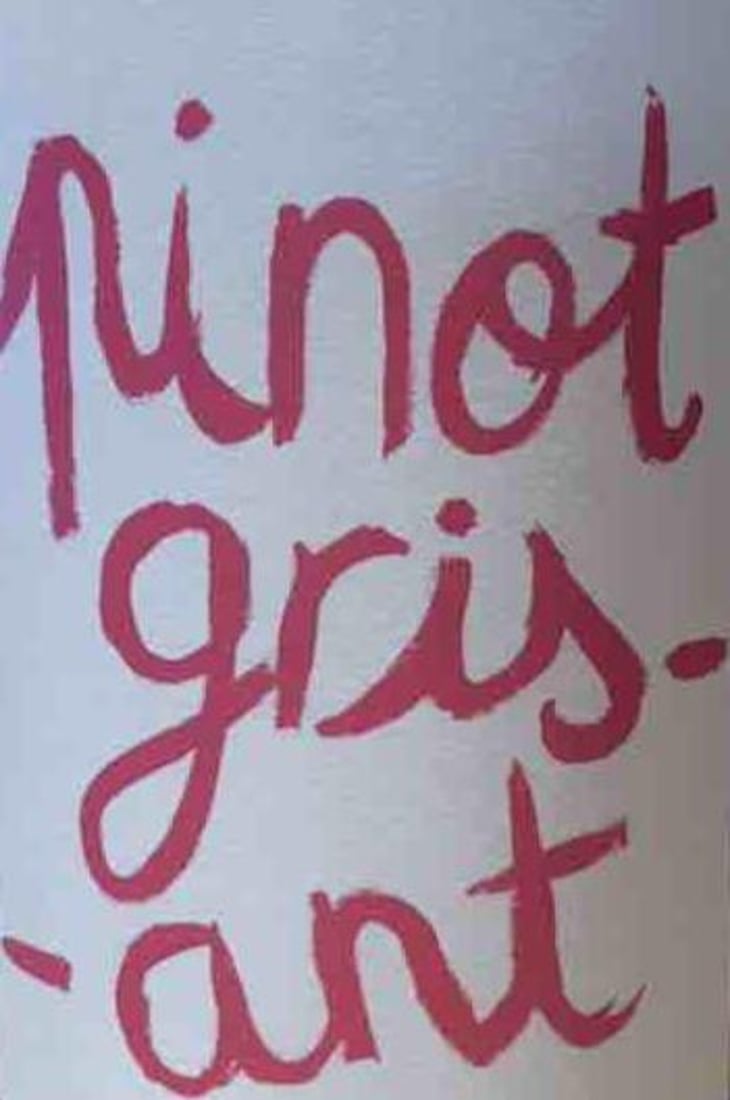 pinot
gris-
-ant